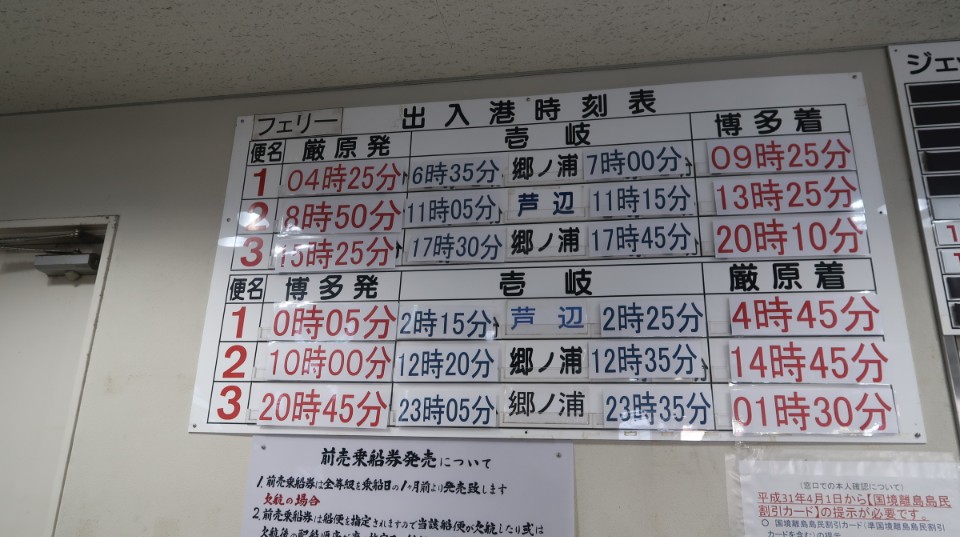 フェリー 出入港時刻表
便名 厳原発 壱岐 博多着
1 04時25分 6時35分 郷ノ浦 7時00分 09時25分
2 8時50分 11時05分 芦辺 11時15分 13時25分
3 15時25分 17時30分 郷ノ浦 17時45分 20時10分
便名 博多発 壱岐 厳原着
1 0時05分 2時15分 芦辺 2時25分 4時45分
2 10時00分 12時20分 郷ノ浦 12時35分 14時45分
3 20時45分 23時05分 郷ノ浦 23時35分 01時30分
ジェッ
前売乗船券発売について
1.前売乗船券は全等級を乗船日の1ヶ月前より発売致します
欠航の場合
2.前売乗船券は船便を指定されますので当該船便が欠航したり或は
(窓口での本人確認について)
平成31年4月1日から【国境離島島民
割引カード】の提示が必要です。
○ 国境離島島民割引カード(準国境離島島民割引
カードを含む)の提示